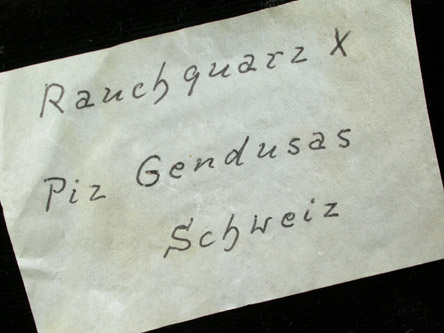 Rauchquarz X
Piz Gendusas
Schweiz